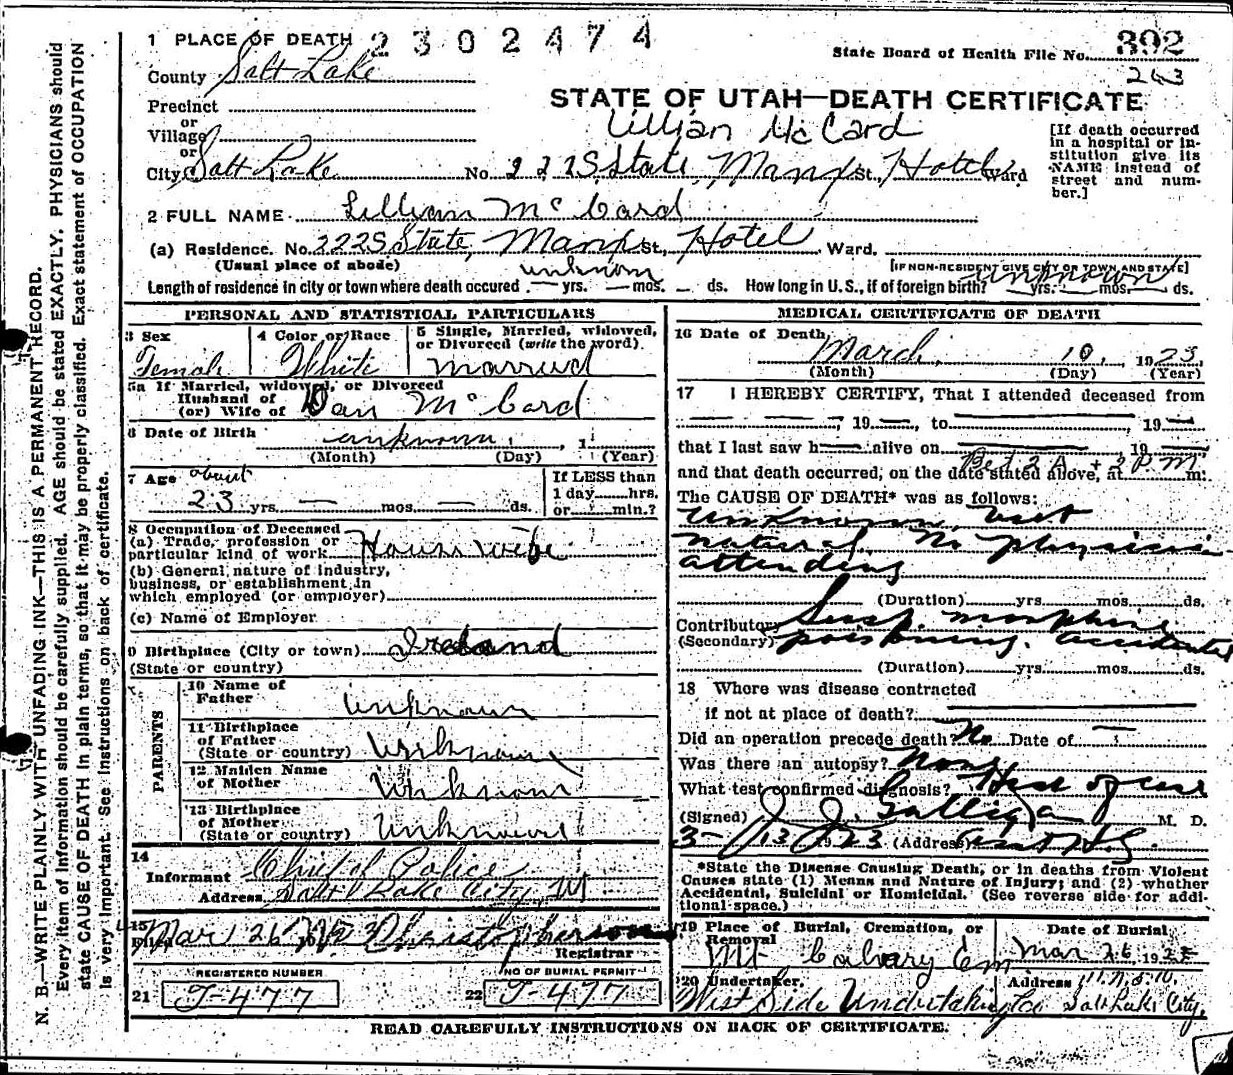 1 PLACE OF DEATH 2302474
State Board of Health File No. 392
263
County Salt Lake
STATE OF UTAH—DEATH CERTIFICATE
Precinct
or
Village
or
Lillian McCard
[If death occurred in a hospital or institution give its NAME instead of street and number.]
City Salt Lake No. 222 S State, Manx St., Hotel Ward
2 FULL NAME Lillian McCard
(a) Residence. No. 222 S State, Manx St., Hotel Ward.
(Usual place of abode) [IF NON-RESIDENT GIVE CITY OR TOWN AND STATE]
unknown unknown
Length of residence in city or town where death occured — yrs. — mos. — ds. How long in U.S., if of foreign birth? yrs. mos. ds.
PERSONAL AND STATISTICAL PARTICULARS
3 Sex Female
4 Color or Race White
5 Single, Married, widowed, or Divorced (write the word). Married
5a If Married, widowed, or Divorced
Husband of
(or) Wife of Dan McCard
6 Date of Birth unknown, 1
(Month) (Day) (Year)
7 Age about
23 yrs. — mos. — ds.
If LESS than
1 day hrs.
or min.?
8 Occupation of Deceased
(a) Trade, profession or
particular kind of work Housewife
(b) General nature of industry,
business, or establishment in
which employed (or employer)
(c) Name of Employer
9 Birthplace (City or town) Ireland
(State or country)
PARENTS
10 Name of Father Unknown
11 Birthplace of Father (State or country) Unknown
12 Maiden Name of Mother Unknown
13 Birthplace of Mother (State or country) Unknown
14
Informant Chief of Police
Address Salt Lake City, Ut
15
Filed Mar 26 1923 Christopherson
Registrar
REGISTERED NUMBER
21 J-477
NO OF BURIAL PERMIT
22 J-477
MEDICAL CERTIFICATE OF DEATH
16 Date of Death March 10, 1923
(Month) (Day) (Year)
17 I HEREBY CERTIFY, That I attended deceased from
—, 19—, to — 19—
that I last saw h— alive on — 19—
and that death occurred, on the date stated above, at Bet 2 A + 2 P. M m.
The CAUSE OF DEATH* was as follows:
Unknown but
natural. No physician
attending
(Duration) yrs. mos. ds.
Contributory Susp. morphine
(Secondary) poisoning. accidental
(Duration) yrs. mos. ds.
18 Where was disease contracted
if not at place of death?
Did an operation precede death? No Date of —
Was there an autopsy? None
What test confirmed diagnosis? Hist of case
(Signed) J. J. Galligan M. D.
3-13 1923 (Address)
*State the Disease Causing Death, or in deaths from Violent
Causes state (1) Means and Nature of Injury; and (2) whether
Accidental, Suicidal or Homicidal. (See reverse side for addi-
tional space.)
19 Place of Burial, Cremation, or Removal
Mt Calvary Cem
Date of Burial
Mar 26 192
20 Undertaker,
West Side Undertaking Co
Address
Salt Lake City,
READ CAREFULLY INSTRUCTIONS ON BACK OF CERTIFICATE.
N. B.—WRITE PLAINLY WITH UNFADING INK—THIS IS A PERMANENT RECORD.
Every item of information should be carefully supplied. AGE should be stated EXACTLY. PHYSICIANS should
state CAUSE OF DEATH in plain terms, so that it may be properly classified. Exact statement of OCCUPATION
is very important. See instructions on back of certificate.